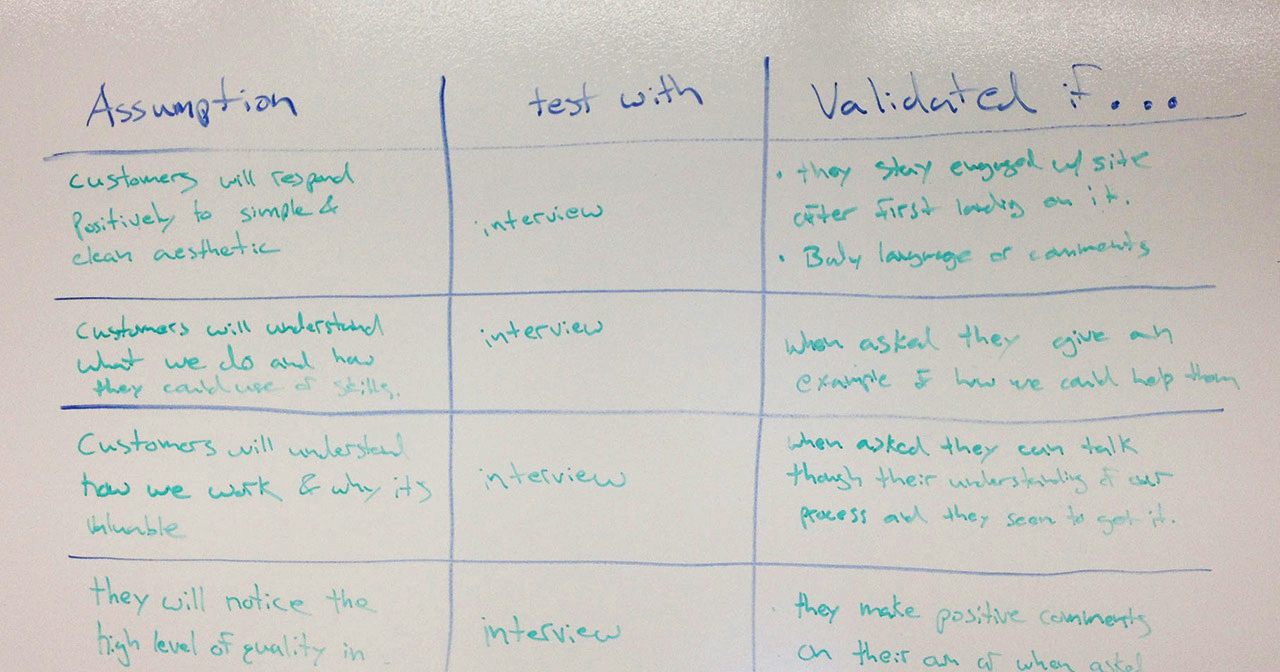 Assumption
test with
Validated if...
Customers will respond
Positively to simple &
clean aesthetic
interview
• they stay engaged w/ site
after first landig on it.
• Body language or comments
Customers will understand
what we do and how
they could use skills.
interview
when asked they give an
example of how we could help them
Customers will understand
how we work & why its
valuable
interview
when asked they can talk
though their understanding of our
process and they seem to get it.
they will notice the
high level of quality in
interview
• they make positive comments
on their own or when asked